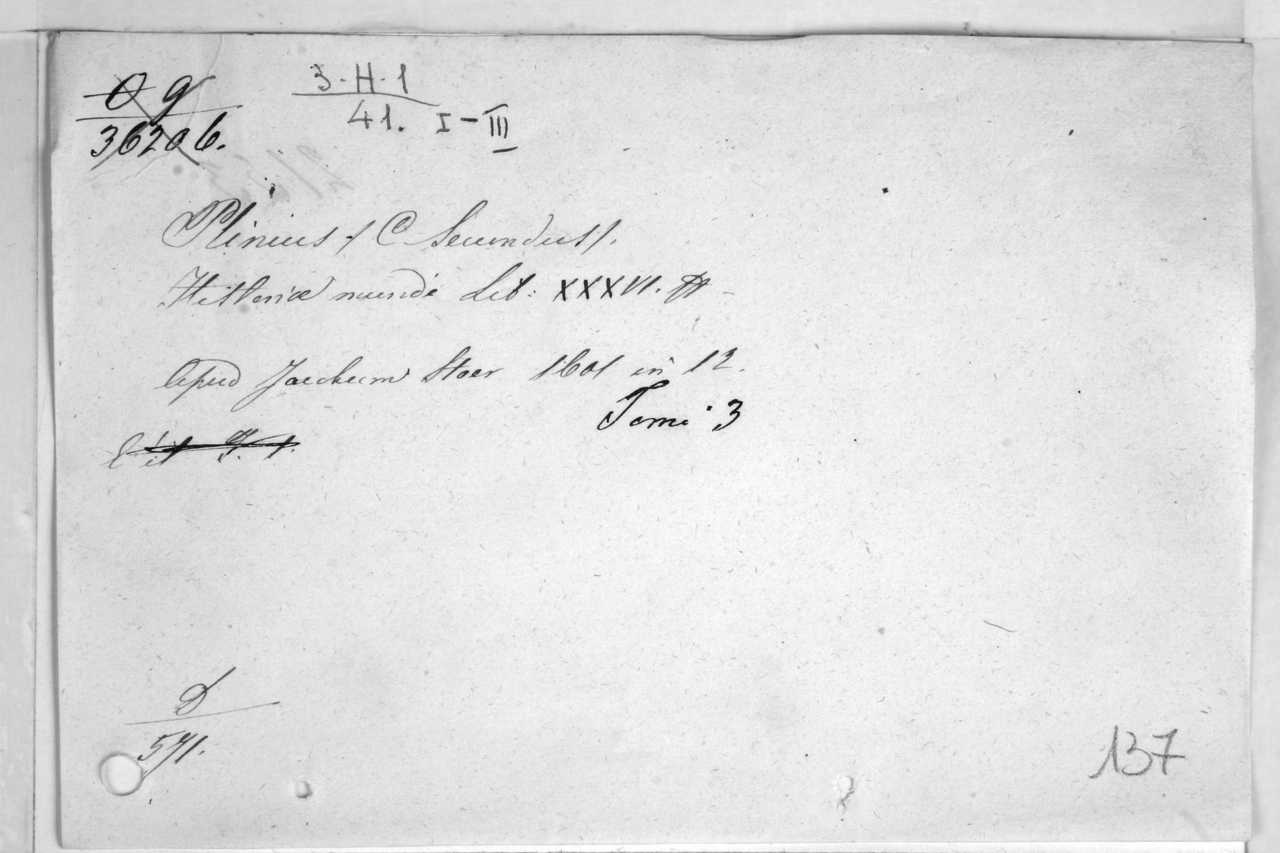 O g
36206.
3-H-1
41. I-III
Plinius / C Secundus/.
Historiæ mundi Lib: XXXVII.
Apud Jacobum Stoer 1601 in 12.
Tomi 3
D
571.
137